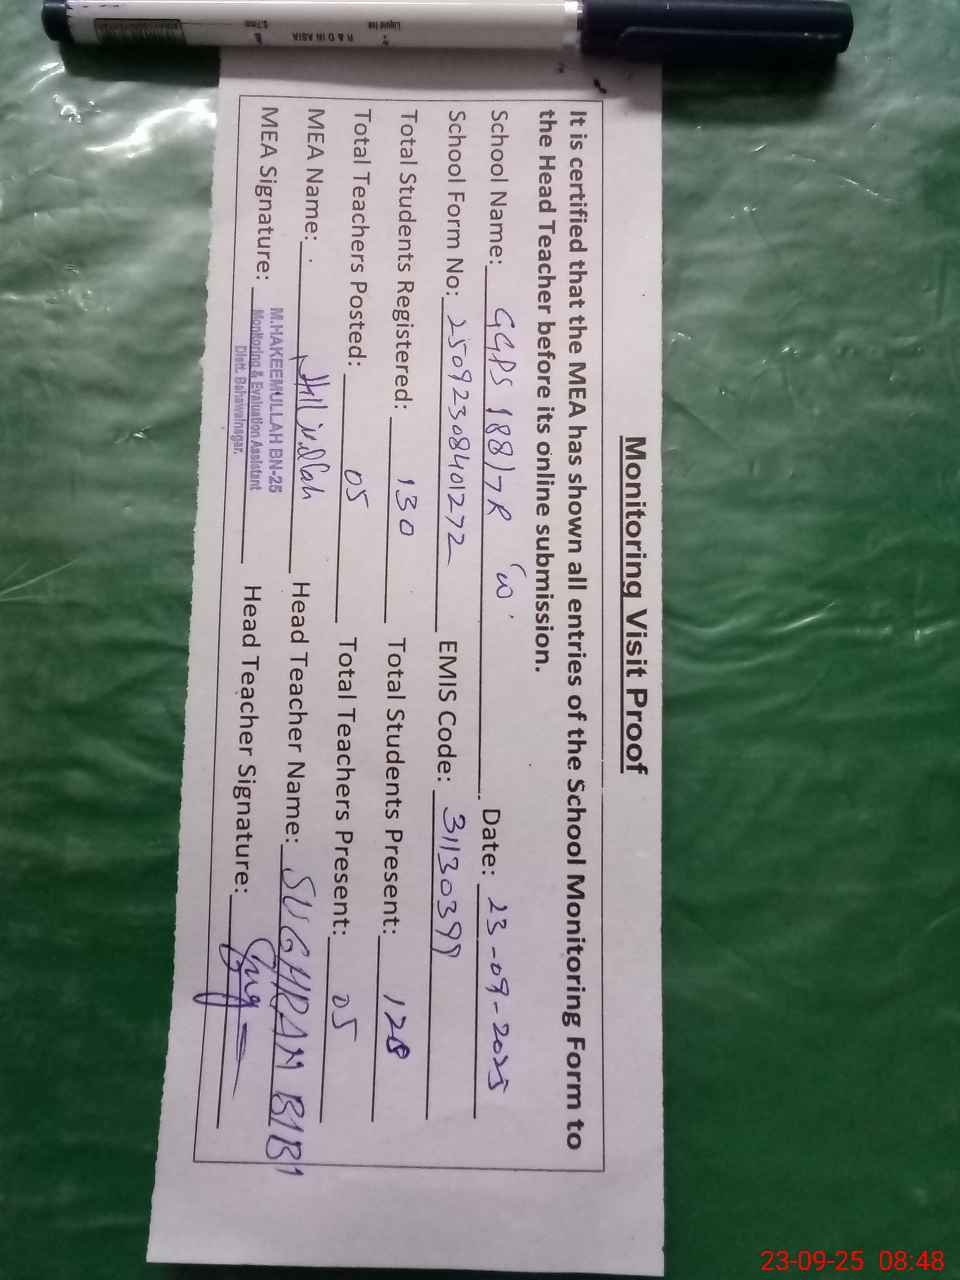 Monitoring Visit Proof
It is certified that the MEA has shown all entries of the School Monitoring Form to
the Head Teacher before its online submission.
School Name: GGPS 188/7R Date: 23-09-2025
School Form No: 25092308401272 EMIS Code: 31130399
Total Students Registered: 130 Total Students Present: 128
Total Teachers Posted: 05 Total Teachers Present: 05
MEA Name: Head Teacher Name: SUGHRAM BIBI
MEA Signature: Head Teacher Signature:
M.HAKEEMULLAH BN-25
Monitoring & Evaluation Assistant
Distt. Bahawalnagar.
R & D IN ASIA
Liquid Ink
23-09-25 08:48